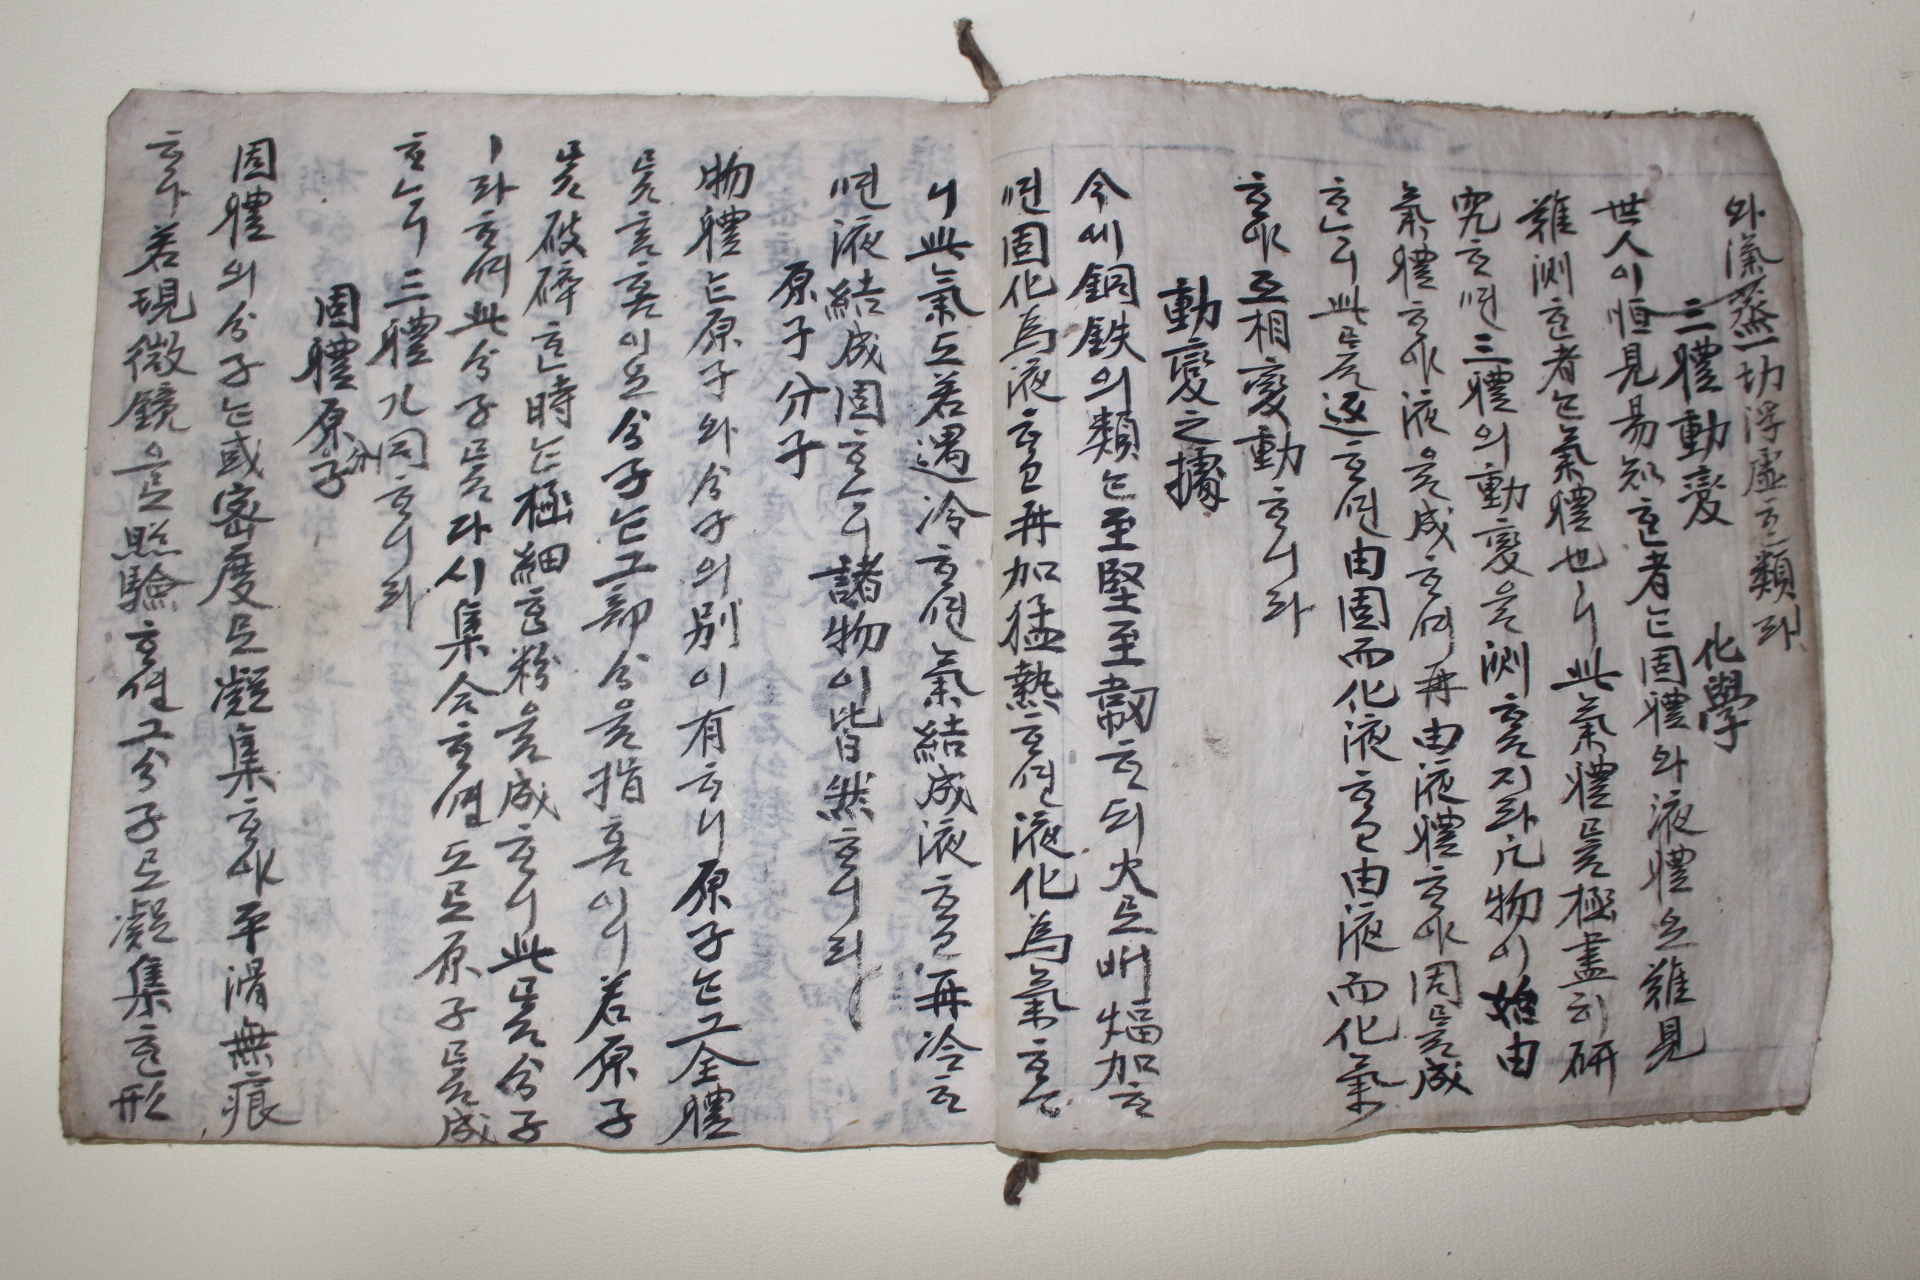 와 濕蒸一切浮虛ᄒᆞᆫ 類라
三體動變 化學
世人이 恒見易知ᄒᆞᄂᆞᆫ 者ᄂᆞᆫ 固體와 液體오 難見
難測ᄒᆞᆫ 者ᄂᆞᆫ 氣體也ㅣ니 此氣體ᄅᆞᆯ 極盡히 研
究ᄒᆞ면 三體의 動變을 測ᄒᆞᆯ지라 凡物이 始由
氣體ᄒᆞ야 液을 成ᄒᆞ며 再由液體ᄒᆞ야 固ᄅᆞᆯ 成
ᄒᆞᄂᆞ니 此ᄅᆞᆯ 逐ᄒᆞ면 由固而化液ᄒᆞ고 由液而化氣
ᄒᆞ야 互相變動ᄒᆞ니라
動變之據
今에 銅鉄의 類ᄂᆞᆫ 至堅至韌ᄒᆞ되 火로 煏加ᄒᆞ
면 固化爲液ᄒᆞ고 再加猛熱ᄒᆞ면 液化爲氣ᄒᆞᄂᆞ
니 此氣도 若遇冷ᄒᆞ면 氣結成液ᄒᆞ고 再冷ᄒᆞ
면 液結成固ᄒᆞᄂᆞ니 諸物이 皆然ᄒᆞ니라
原子分子
物體ᄂᆞᆫ 原子와 分子의 別이 有ᄒᆞ니 原子ᄂᆞᆫ 그 全體
ᄅᆞᆯ 言홈이오 分子ᄂᆞᆫ 그 部分을 指홈이니 若原子
ᄅᆞᆯ 破碎ᄒᆞᆫ 時ᄂᆞᆫ 極細ᄒᆞᆫ 粉을 成ᄒᆞ니 此ᄅᆞᆯ 分子
ㅣ라 ᄒᆞ며 此分子ᄅᆞᆯ 다시 集合ᄒᆞ면 도로 原子ᄅᆞᆯ 成
ᄒᆞᄂᆞ니 三體가 同ᄒᆞ니라
固體原分子
固體의 分子ᄂᆞᆫ 或密度로 凝集ᄒᆞ야 平滑無痕
ᄒᆞ나 若現微鏡으로 照驗ᄒᆞ면 그 分子로 凝集ᄒᆞᆫ 形